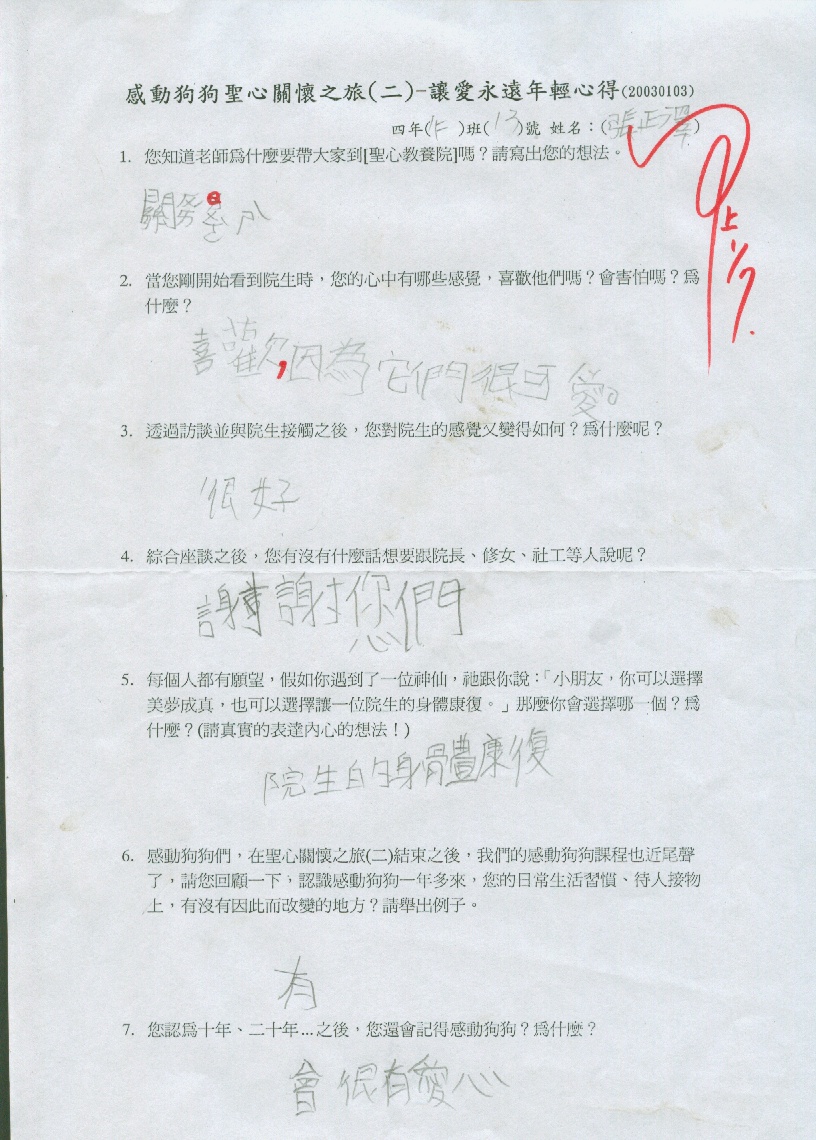 感動狗狗聖心關懷之旅(二)-讓愛永遠年輕心得(20030103)
四年( )班(13)號 姓名：(張正澤)
1. 您知道老師爲什麼要帶大家到[聖心教養院]嗎？請寫出您的想法。
上 1/7.
2. 當您剛開始看到院生時，您的心中有哪些感覺，喜歡他們嗎？會害怕嗎？爲
什麼？
喜歡，因為它們很可愛。
3. 透過訪談並與院生接觸之後，您對院生的感覺又變得如何？爲什麼呢？
很好
4. 綜合座談之後，您有沒有什麼話想要跟院長、修女、社工等人說呢？
謝謝您們
5. 每個人都有願望，假如你遇到了一位神仙，祂跟你說：「小朋友，你可以選擇
美夢成真，也可以選擇讓一位院生的身體康復。」那麼你會選擇哪一個？爲
什麼？(請真實的表達內心的想法！)
院生的身體康復
6. 感動狗狗們，在聖心關懷之旅(二)結束之後，我們的感動狗狗課程也近尾聲
了，請您回顧一下，認識感動狗狗一年多來，您的日常生活習慣、待人接物
上，有沒有因此而改變的地方？請舉出例子。
有
7. 您認爲十年、二十年...之後，您還會記得感動狗狗？爲什麼？
會 很有愛心